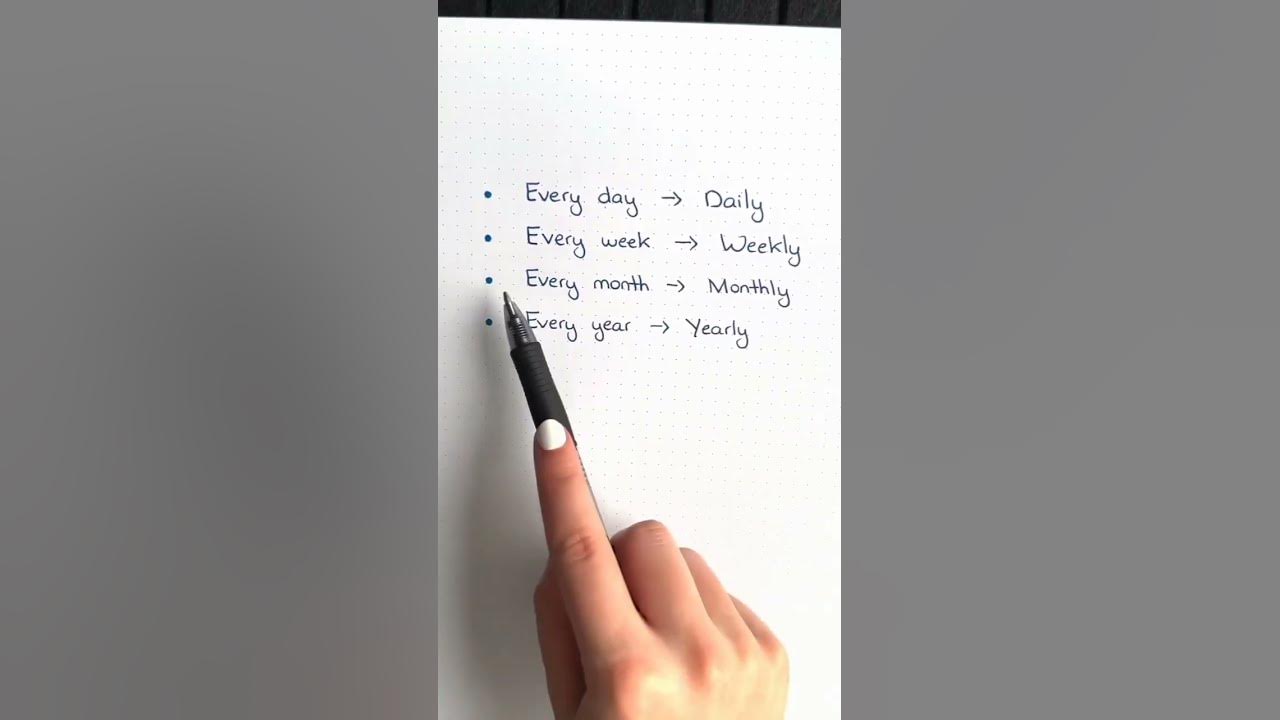 • Every day → Daily
• Every week → Weekly
• Every month → Monthly
• Every year → Yearly